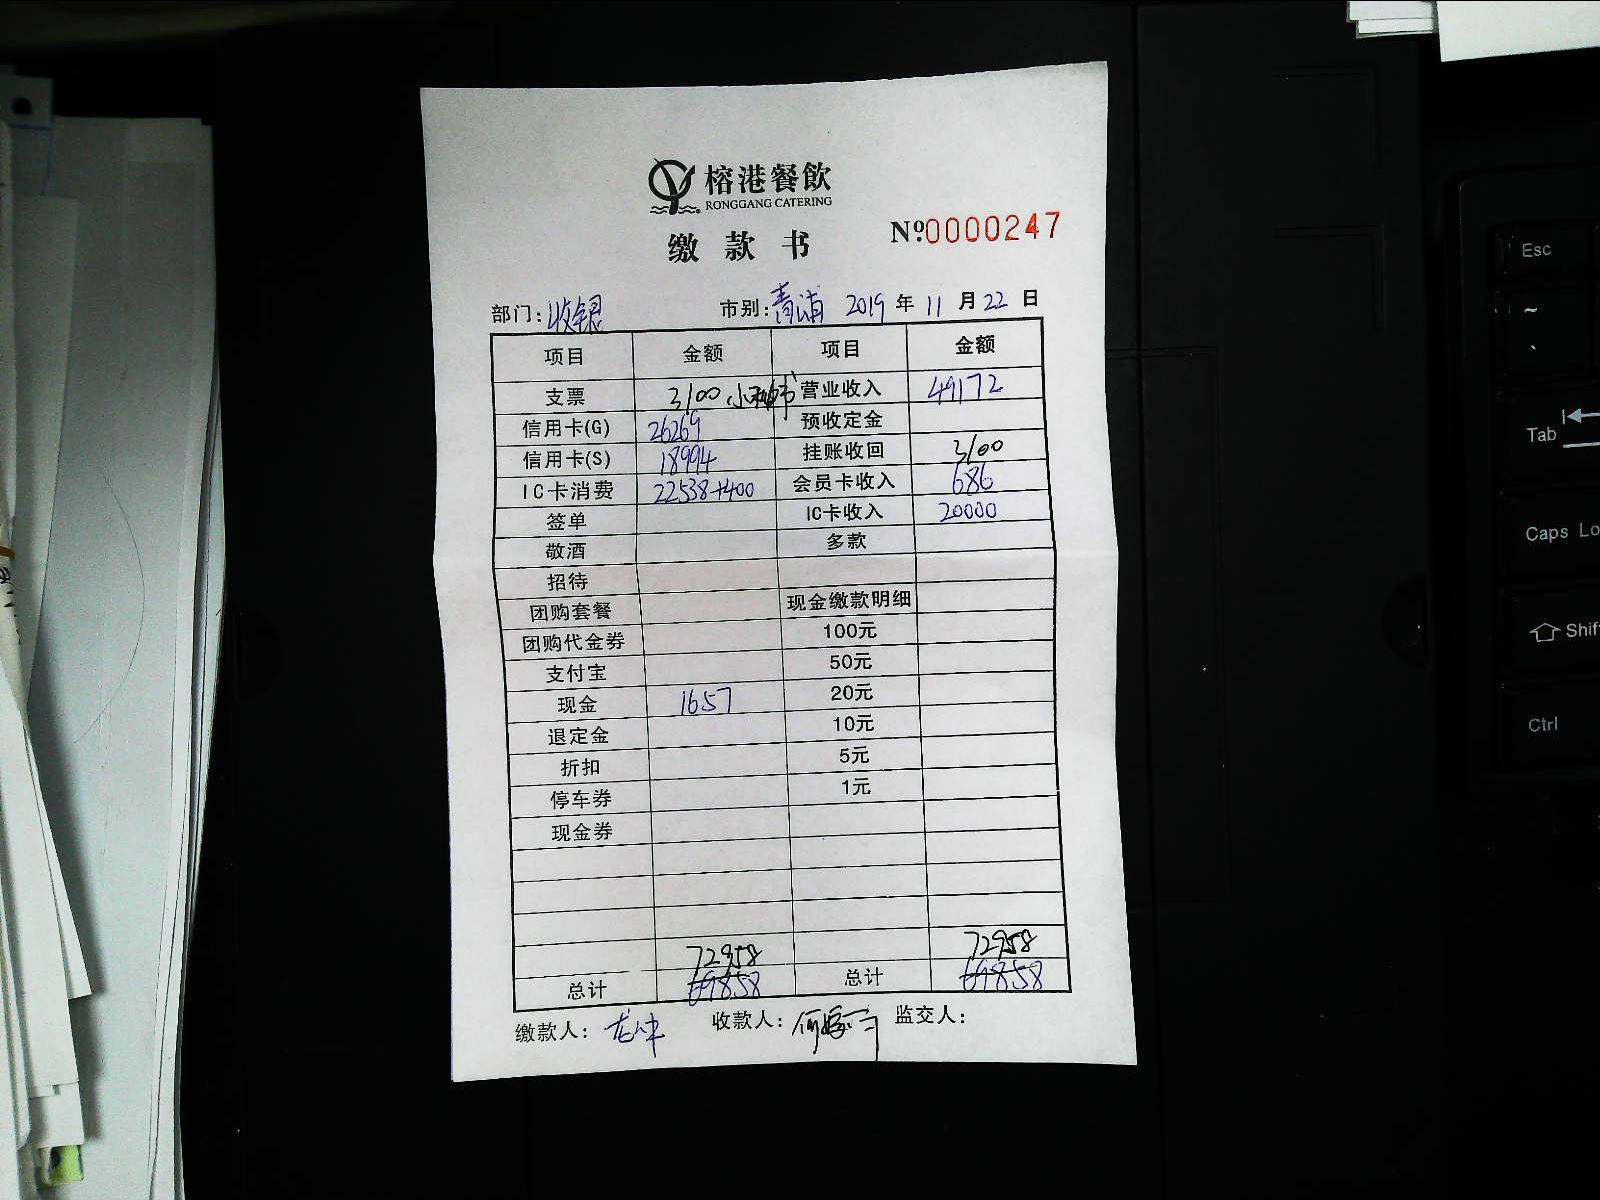 榕港餐飲
RONGGANG CATERING
缴款书
Nº:0000247
部门:收银 市别:青浦 2019年11月22日
项目 金额 项目 金额
支票 3100 小秘书 营业收入 49172
信用卡(G) 26269 预收定金
信用卡(S) 18994 挂账收回 3100
IC卡消费 22538+400 会员卡收入 686
签单 IC卡收入 20000
敬酒 多款
招待
团购套餐 现金缴款明细
团购代金券 100元
支付宝 50元
现金 1657 20元
退定金 10元
折扣 5元
停车券 1元
现金券
72958 72958
总计 69858 总计 69858
缴款人: 收款人: 监交人:
Esc
~
、
Tab
Caps Lo
Shif
Ctrl